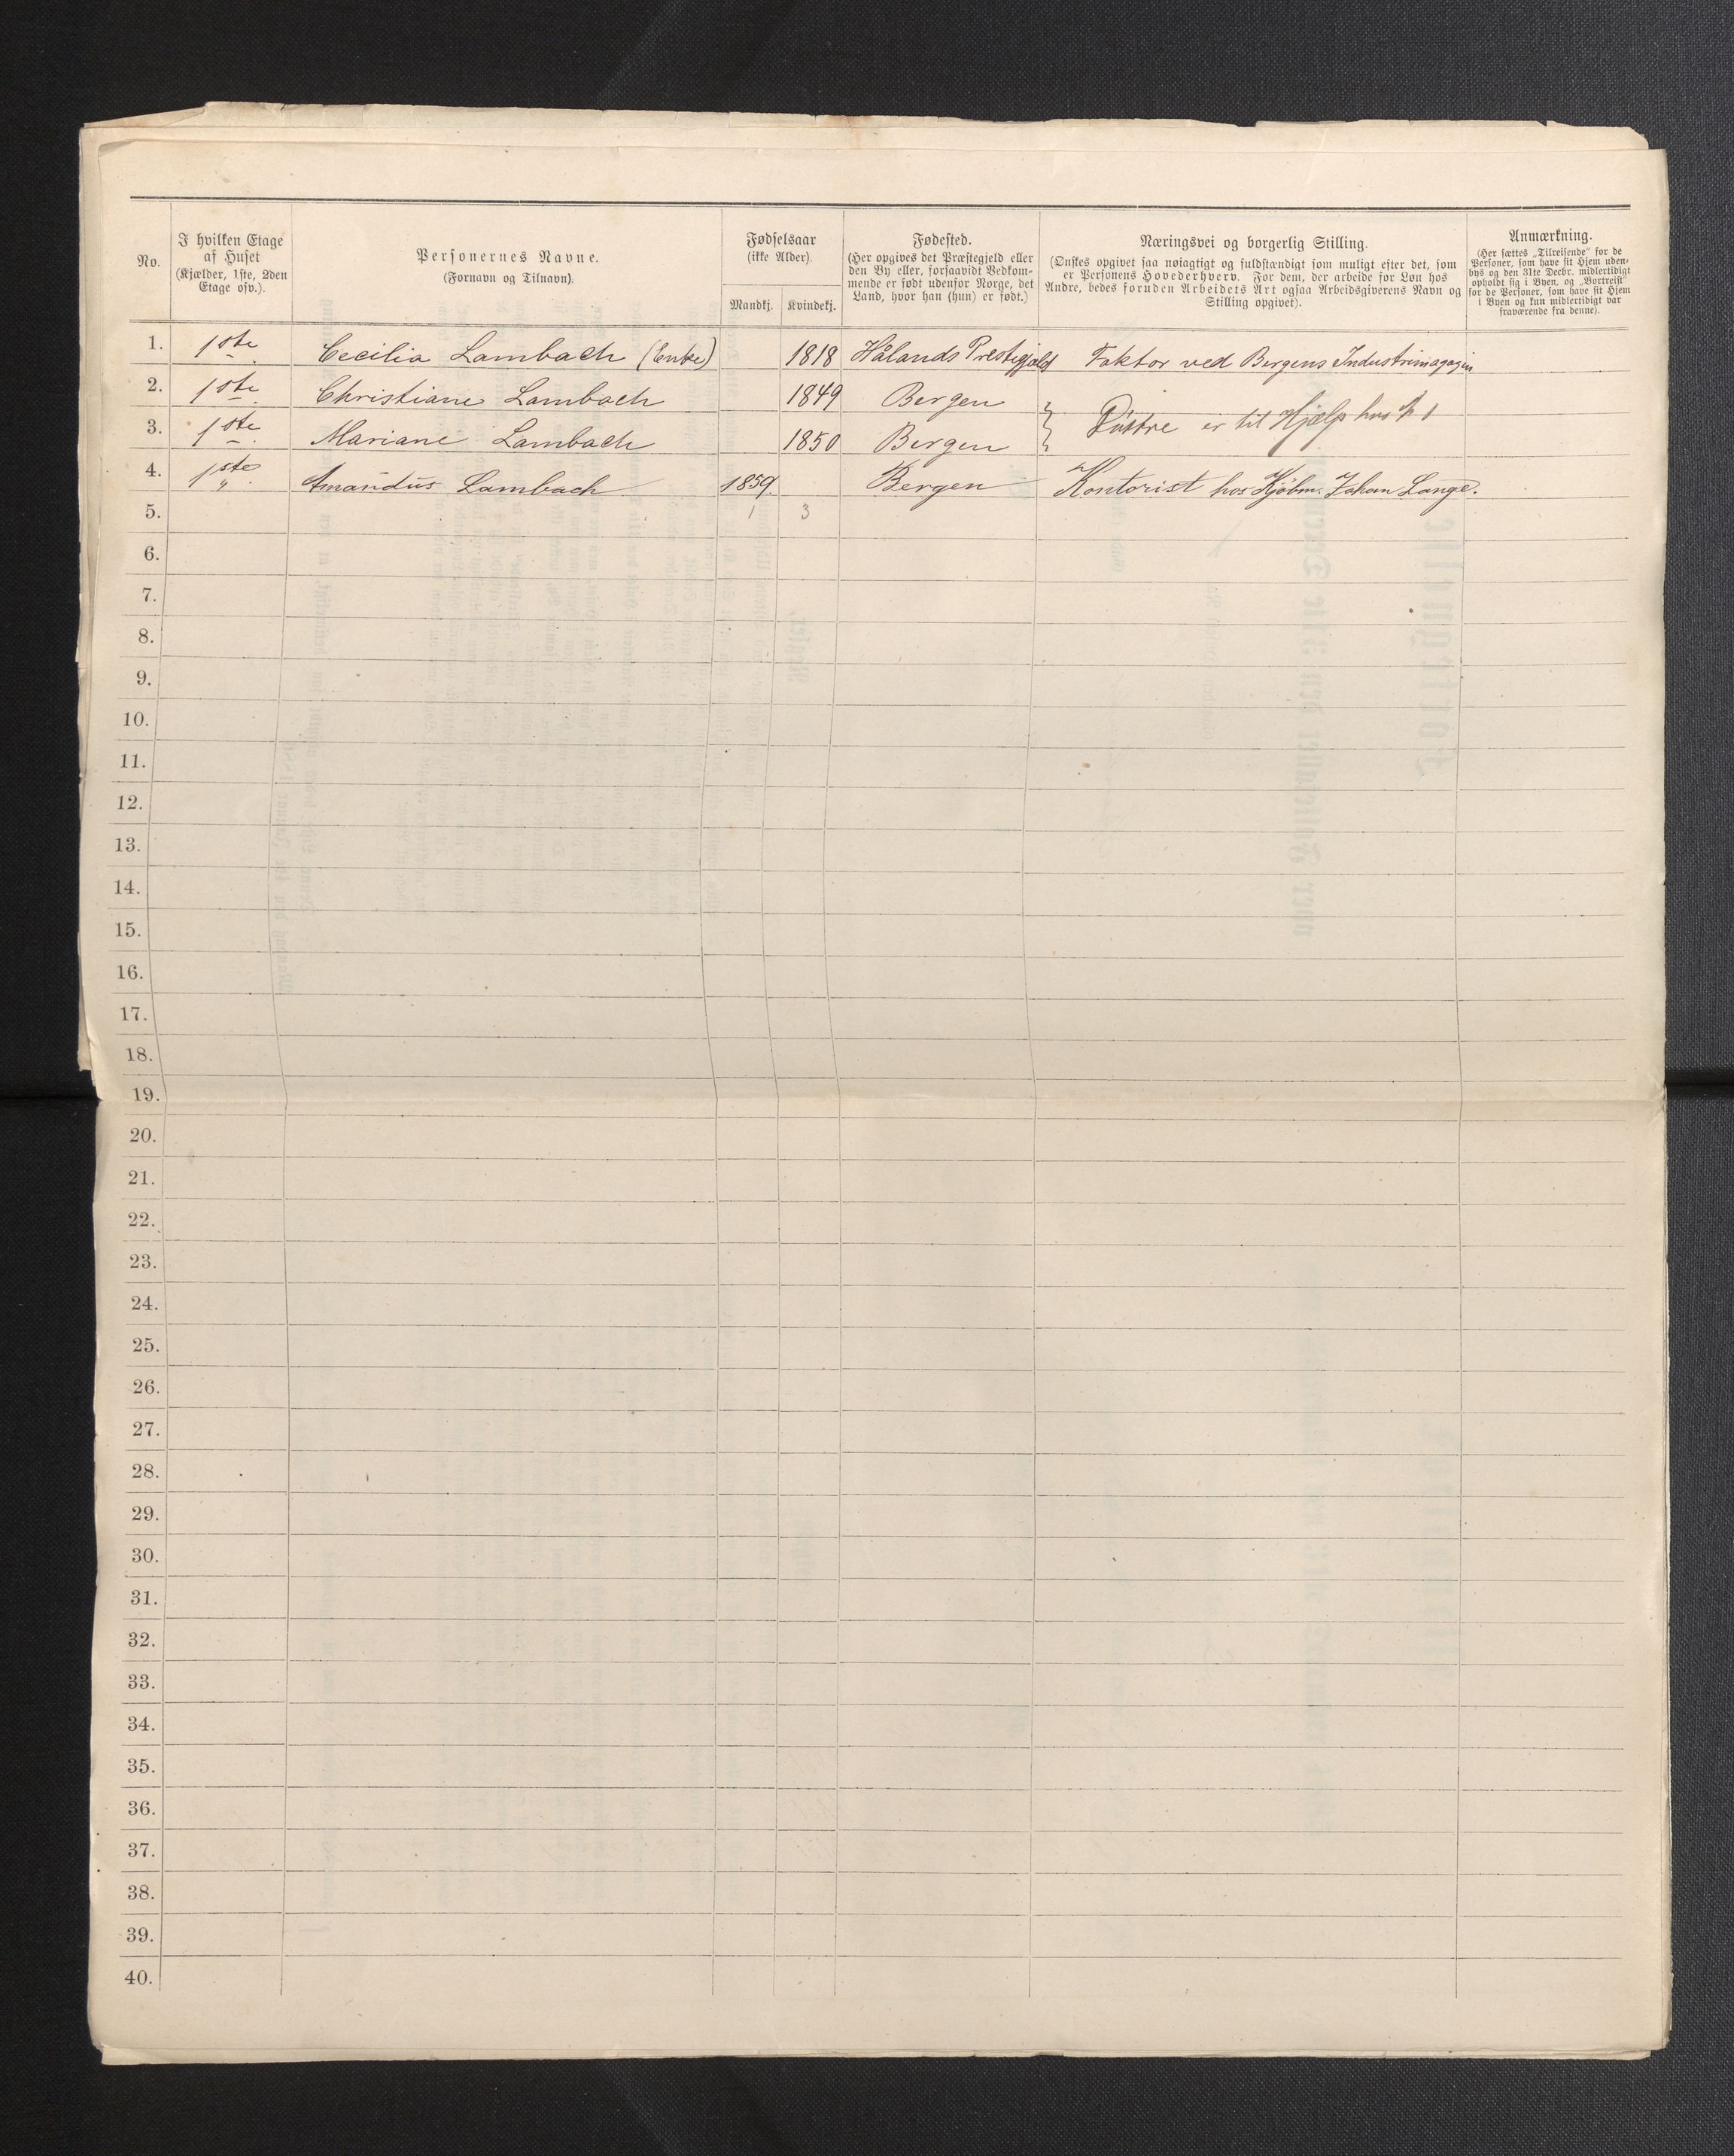 No.
I hvilken Etage
af Huset
(Kjælder, 1ste, 2den
Etage osv.).
Personernes Navne.
(Fornavn og Tilnavn).
Fødselsaar
(ikke Alder).
Mandkj. Kvindekj.
Fødested.
(Her opgives det Præstegjeld eller
den By eller, forsaavidt Vedkom-
mende er født udenfor Norge, det
Land, hvor han (hun) er født.)
Næringsvei og borgerlig Stilling.
(Ønskes opgivet saa nøiagtigt og fuldstændigt som muligt efter det, som
er Personens Hovederhverv. For dem, der arbeide for Løn hos
Andre, bedes foruden Arbeidets Art ogsaa Arbeidsgiverens Navn og
Stilling opgivet).
Anmærkning.
(Her sættes „Tilreisende“ for de
Personer, som have sit Hjem uden-
bys og den 31te Decbr. midlertidigt
opholdt sig i Byen, og „Bortreist“
for de Personer, som have sit Hjem
i Byen og kun midlertidigt var
fraværende fra denne).
1. 1ste Cecilia Lambach (Enke) 1818 Hålands Prestegjæld Faktor ved Bergens Industrimagazin
2. 1ste Christiane Lambach 1849 Bergen
3. 1ste Mariane Lambach 1850 Bergen
} Døttre er til Hjælp hos № 1
4. 1ste Amandus Lambach 1859. Bergen Kontorist hos Kjøbm. Johan Lange.
5. 1 3
6.
7.
8.
9.
10.
11.
12.
13.
14.
15.
16.
17.
18.
19.
20.
21.
22.
23.
24.
25.
26.
27.
28.
29.
30.
31.
32.
33.
34.
35.
36.
37.
38.
39.
40.